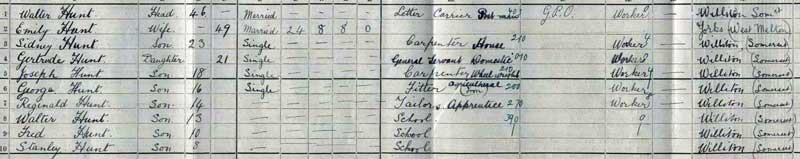 1 Walter Hunt Head 46 — Married — — — — Letter Carrier Postman G.P.O. Worker — Williton Somt
2 Emily Hunt Wife 49 Married 24 8 8 0 Yorks (West Melton)
3 Sidney Hunt Son 23 Single Carpenter House 210 Worker — Williton (Somerset)
4 Gertrude Hunt Daughter 21 Single General Servant Domestic Worker — Williton (Somerset)
5 Joseph Hunt Son 18 Single Carpenter Wheelwright Worker — Williton (Somerset)
6 George Hunt Son 16 Single Fitter Agricultural 200 Worker — Williton (Somerset)
7 Reginald Hunt Son 14 — Tailors Apprentice 270 Worker — Williton (Somerset)
8 Walter Hunt Son 13 — School 390 Williton (Somerset)
9 Fred Hunt Son 10 — School Williton (Somerset)
10 Stanley Hunt Son 8 — School Williton (Somerset)